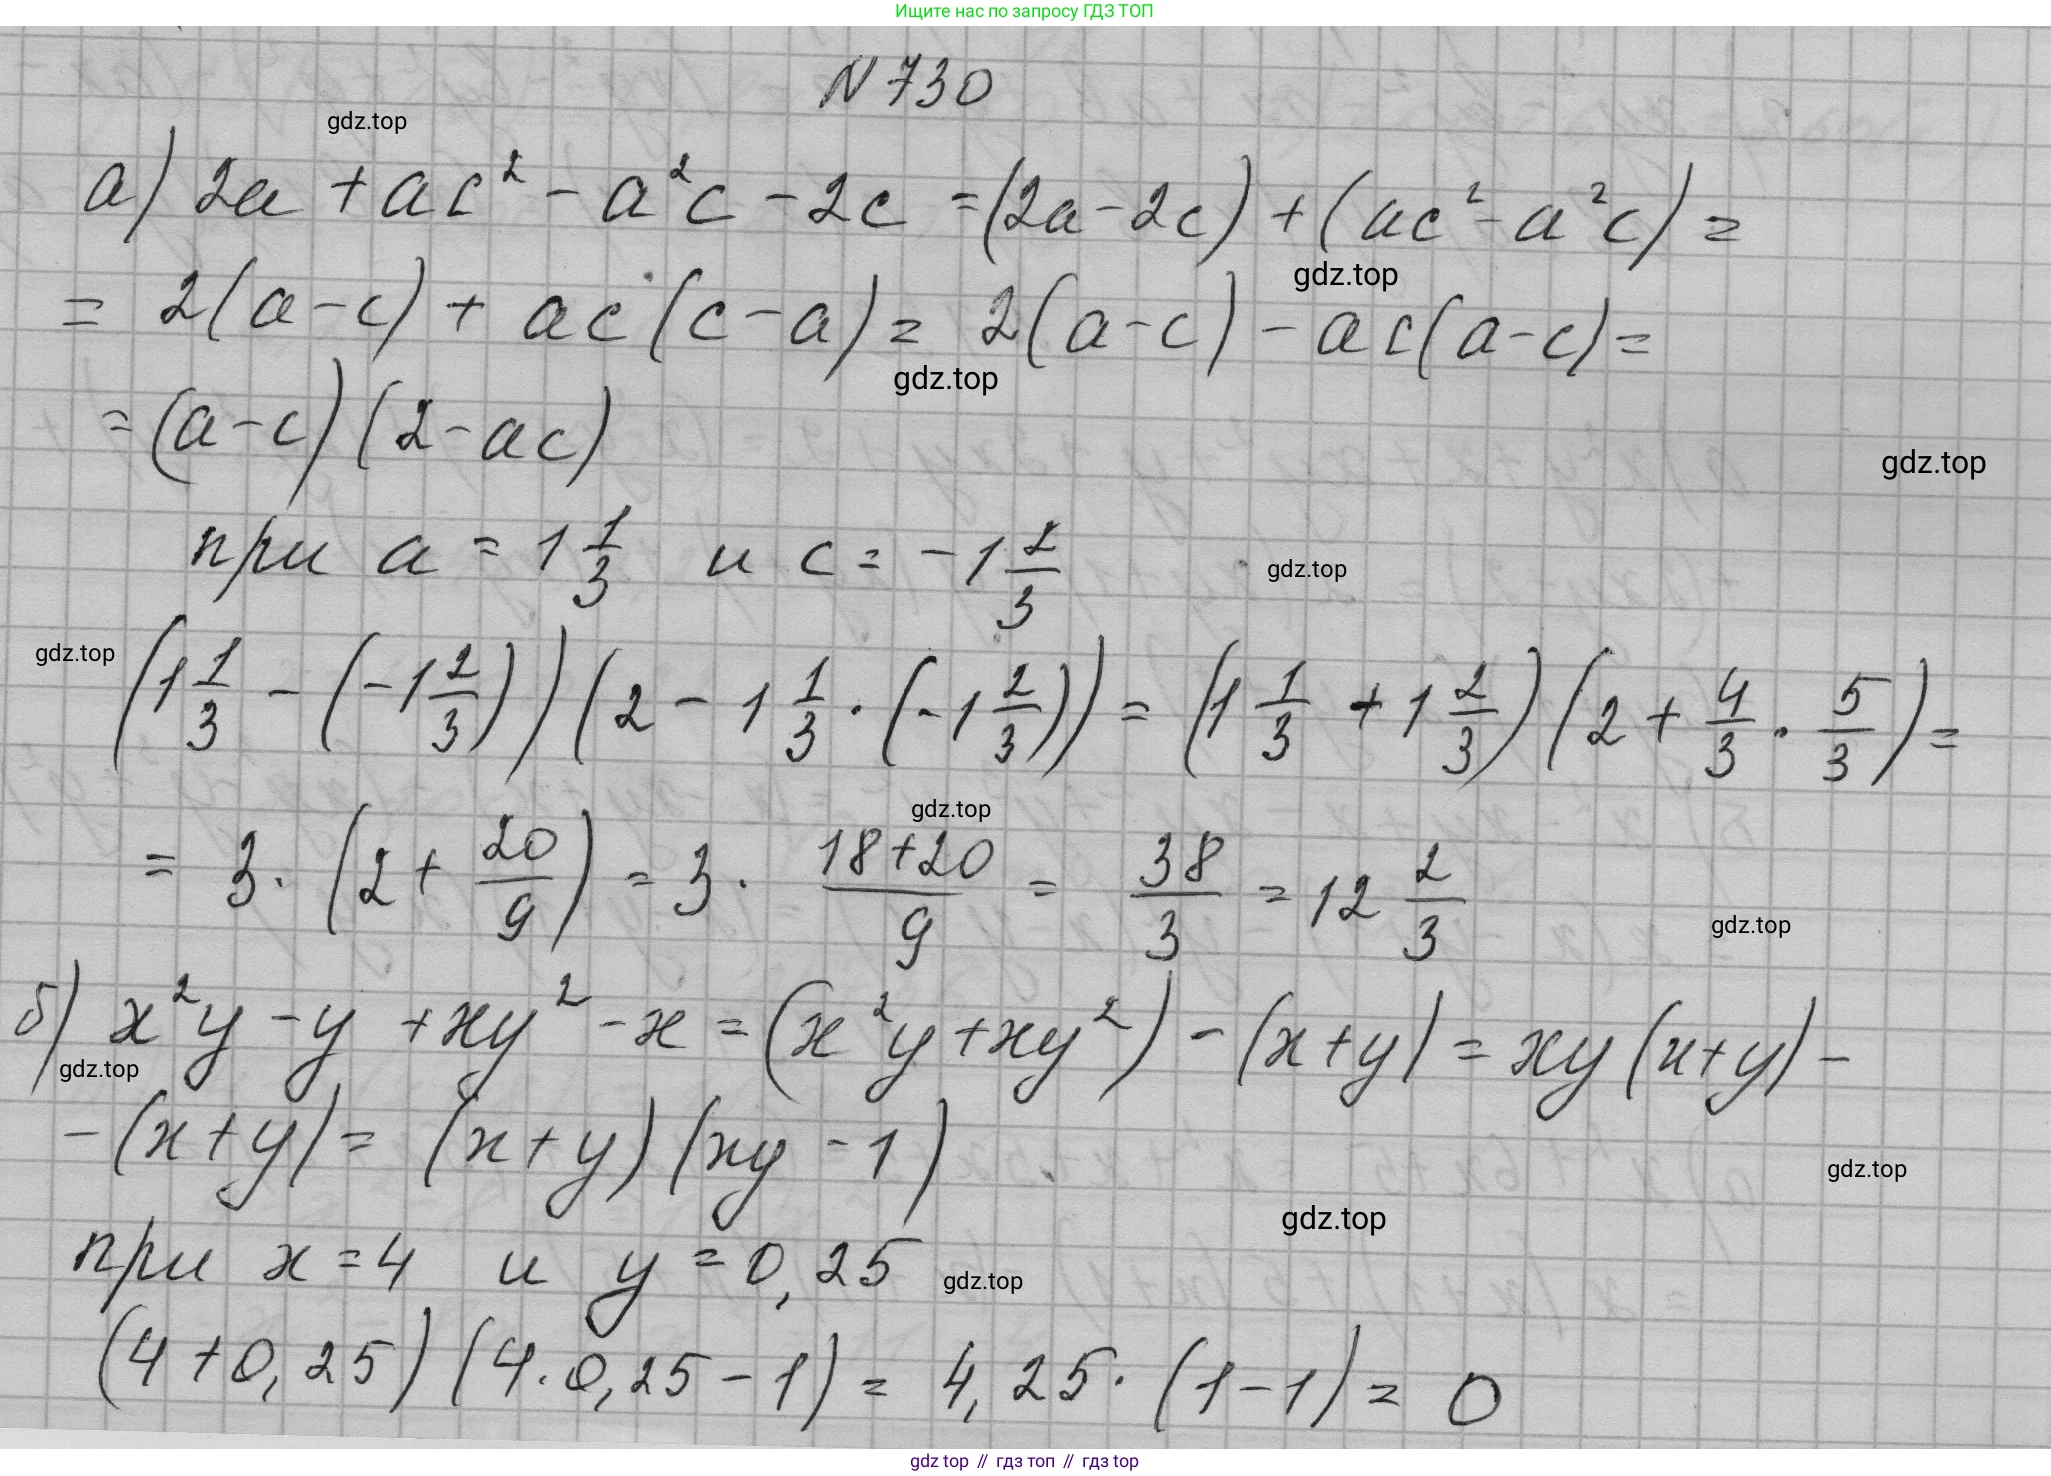 Ищите нас по запросу ГДЗ ТОП
N 730
gdz.top
а) 2a + ac² - a²c - 2c = (2a - 2c) + (ac² - a²c) =
gdz.top
= 2(a - c) + ac(c - a) = 2(a - c) - ac(a - c) =
gdz.top
= (a - c)(2 - ac)
gdz.top
при a = 1 1/3 и c = -1 2/3
gdz.top
gdz.top
(1 1/3 - (-1 2/3))(2 - 1 1/3 · (-1 2/3)) = (1 1/3 + 1 2/3)(2 + 4/3 · 5/3) =
gdz.top
= 3 · (2 + 20/9) = 3 · (18+20)/9 = 38/3 = 12 2/3
gdz.top
б) x²y - y + xy² - x = (x²y + xy²) - (x + y) = xy(x + y) -
gdz.top
- (x + y) = (x + y)(xy - 1)
gdz.top
gdz.top
при x = 4 и y = 0,25
gdz.top
(4 + 0,25)(4 · 0,25 - 1) = 4,25 · (1 - 1) = 0
gdz top // гдз топ // гдз top